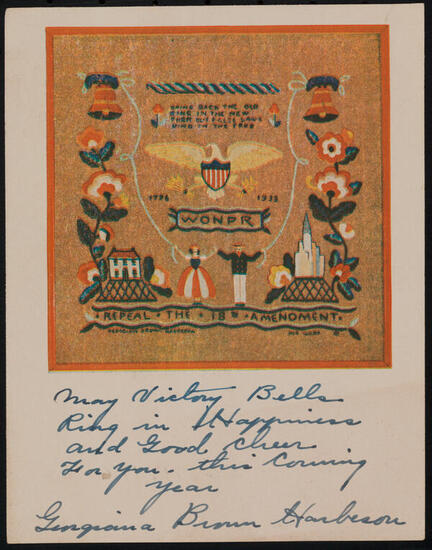 RING IN THE NEW
RING IN THE FREE
1776 1933
WONPR
REPEAL · THE · 18TH · AMENDMENT
May Victory Bells
Ring in Happiness
and Good Cheer
For you - this Coming
year
Georgiana Brown Harbeson